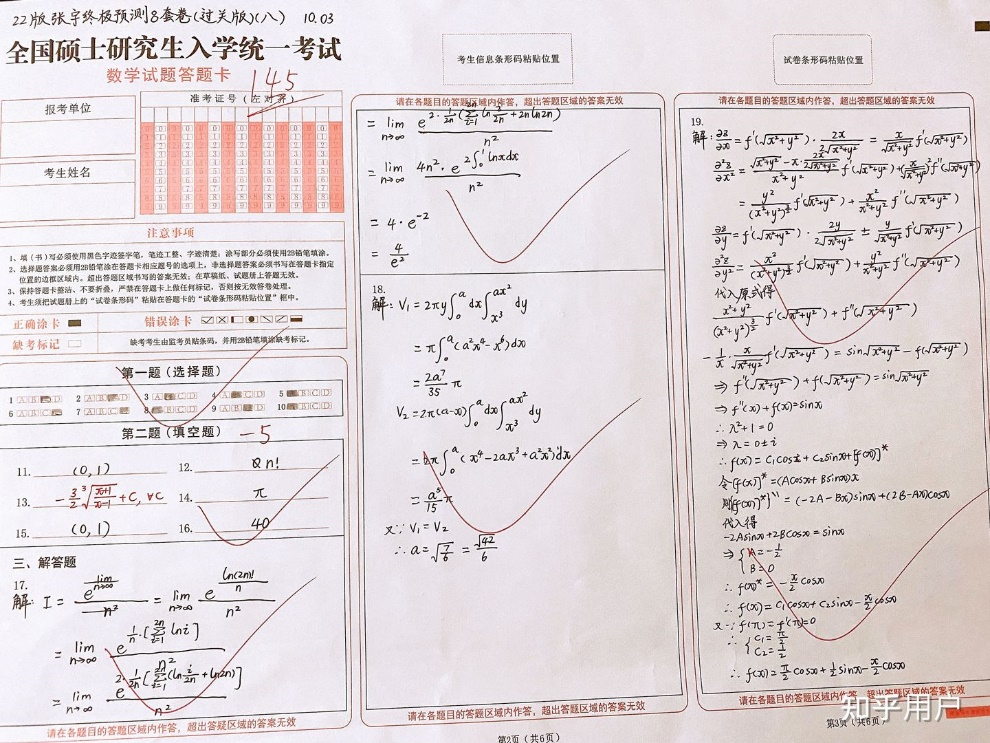 22版张宇终极预测8套卷(过关版)(八) 10.03
全国硕士研究生入学统一考试
数学试题答题卡
145
报考单位
准考证号(左对齐)
考生姓名
注意事项
1、填(书)写必须使用黑色字迹签字笔,笔迹工整、字迹清楚;涂写部分必须使用2B铅笔填涂。
2、选择题答案必须用2B铅笔涂在答题卡相应题号的选项上,非选择题答案必须书写在答题卡指定
位置的边框区域内。超出答题区域书写的答案无效;在草稿纸、试题册上答题无效。
3、保持答题卡整洁,不要折叠,严禁在答题卡上做任何标记,否则按无效答卷处理。
4、考生须把试题册上的“试卷条形码”粘贴在答题卡的“试卷条形码粘贴位置”框中。
正确涂卡 错误涂卡
缺考标记 缺考考生由监考员贴条码,并用2B铅笔填涂缺考标记。
第一题(选择题)
1 A B C D 2 A B C D 3 A B C D 4 A B C D 5 A B C D
6 A B C D 7 A B C D 8 A B C D 9 A B C D 10 A B C D
第二题(填空题) -5
11. (0,1) 12. 2n!
13. -3/2 ∛((x+1)/(x-1)) + C, ∀C 14. π
15. (0,1) 16. 40
三、解答题
17.
解: I = e^(lim n→∞) / n² = lim n→∞ e^(ln(2n)!/n) / n²
= lim n→∞ e^(1/n·[Σ_{i=1}^{2n} ln i]) / n²
= lim n→∞ e^(2·1/2n[Σ_{i=1}^{2n}(ln i/2n + ln2n)]) / n²
请在各题目的答题区域内作答,超出答疑区域的答案无效
考生信息条形码粘贴位置
请在各题目的答题区域内作答,超出答题区域的答案无效
= lim n→∞ e^(2·1/2n(Σ_{i=1}^{2n} ln i/2n + 2n ln2n)) / n²
= lim n→∞ 4n²·e^(2∫₀¹ lnxdx) / n²
= 4·e⁻²
= 4/e²
18.
解: V₁ = 2πy∫₀^a dx∫_{x³}^{ax²} dy
= π∫₀^a (a²x⁴-x⁶)dx
= 2a⁷/35 π
V₂ = 2π(a-x)∫₀^a dx∫_{x³}^{ax²} dy
= 2π∫₀^a (x⁴-2ax³+a²x²)dx
= a⁵/15 π
又∵ V₁ = V₂
∴ a = √(7/6) = √42/6
请在各题目的答题区域内作答,超出答题区域的答案无效
第2页(共6页)
试卷条形码粘贴位置
请在各题目的答题区域内作答,超出答题区域的答案无效
19.
解: ∂z/∂x = f'(√(x²+y²))·2x/(2√(x²+y²)) = x/√(x²+y²) f'(√(x²+y²))
∂²z/∂x² = (√(x²+y²) - x·2x/(2√(x²+y²)))/(x²+y²) f'(√(x²+y²)) + (x/√(x²+y²))² f''(√(x²+y²))
= y²/(x²+y²)^(3/2) f'(√(x²+y²)) + x²/(x²+y²) f''(√(x²+y²))
∂z/∂y = f'(√(x²+y²))·2y/(2√(x²+y²)) = y/√(x²+y²) f'(√(x²+y²))
∂²z/∂y² = x²/(x²+y²)^(3/2) f'(√(x²+y²)) + y²/(x²+y²) f''(√(x²+y²))
代入原式得
(x²+y²)/(x²+y²)^(3/2) f'(√(x²+y²)) + f''(√(x²+y²))
- 1/x·x/√(x²+y²) f'(√(x²+y²)) = sin√(x²+y²) - f(√(x²+y²))
⇒ f''(√(x²+y²)) + f(√(x²+y²)) = sin√(x²+y²)
⇒ f''(x)+f(x)=sinx
∴ λ²+1=0
⇒ λ=0±i
∴ f(x)=C₁cosx+C₂sinx+[f(x)]*
令[f(x)]*=(Acosx+Bsinx)x
则{[f(x)]*}''=(-2A-Bx)sinx+(2B-Ax)cosx
代入得
-2Asinx+2Bcosx=sinx
⇒ { A=-1/2
B=0
∴ f(x)*=-x/2 cosx
∴ f(x)=C₁cosx+C₂sinx-x/2 cosx
又∵ f(π)=f'(π)=0
∴ { C₁=π/2
C₂=1/2
∴ f(x)=π/2 cosx+1/2 sinx-x/2 cosx
请在各题目的答题区域内作答,超出答题区域的答案无效
第3页(共6页)
知乎用户